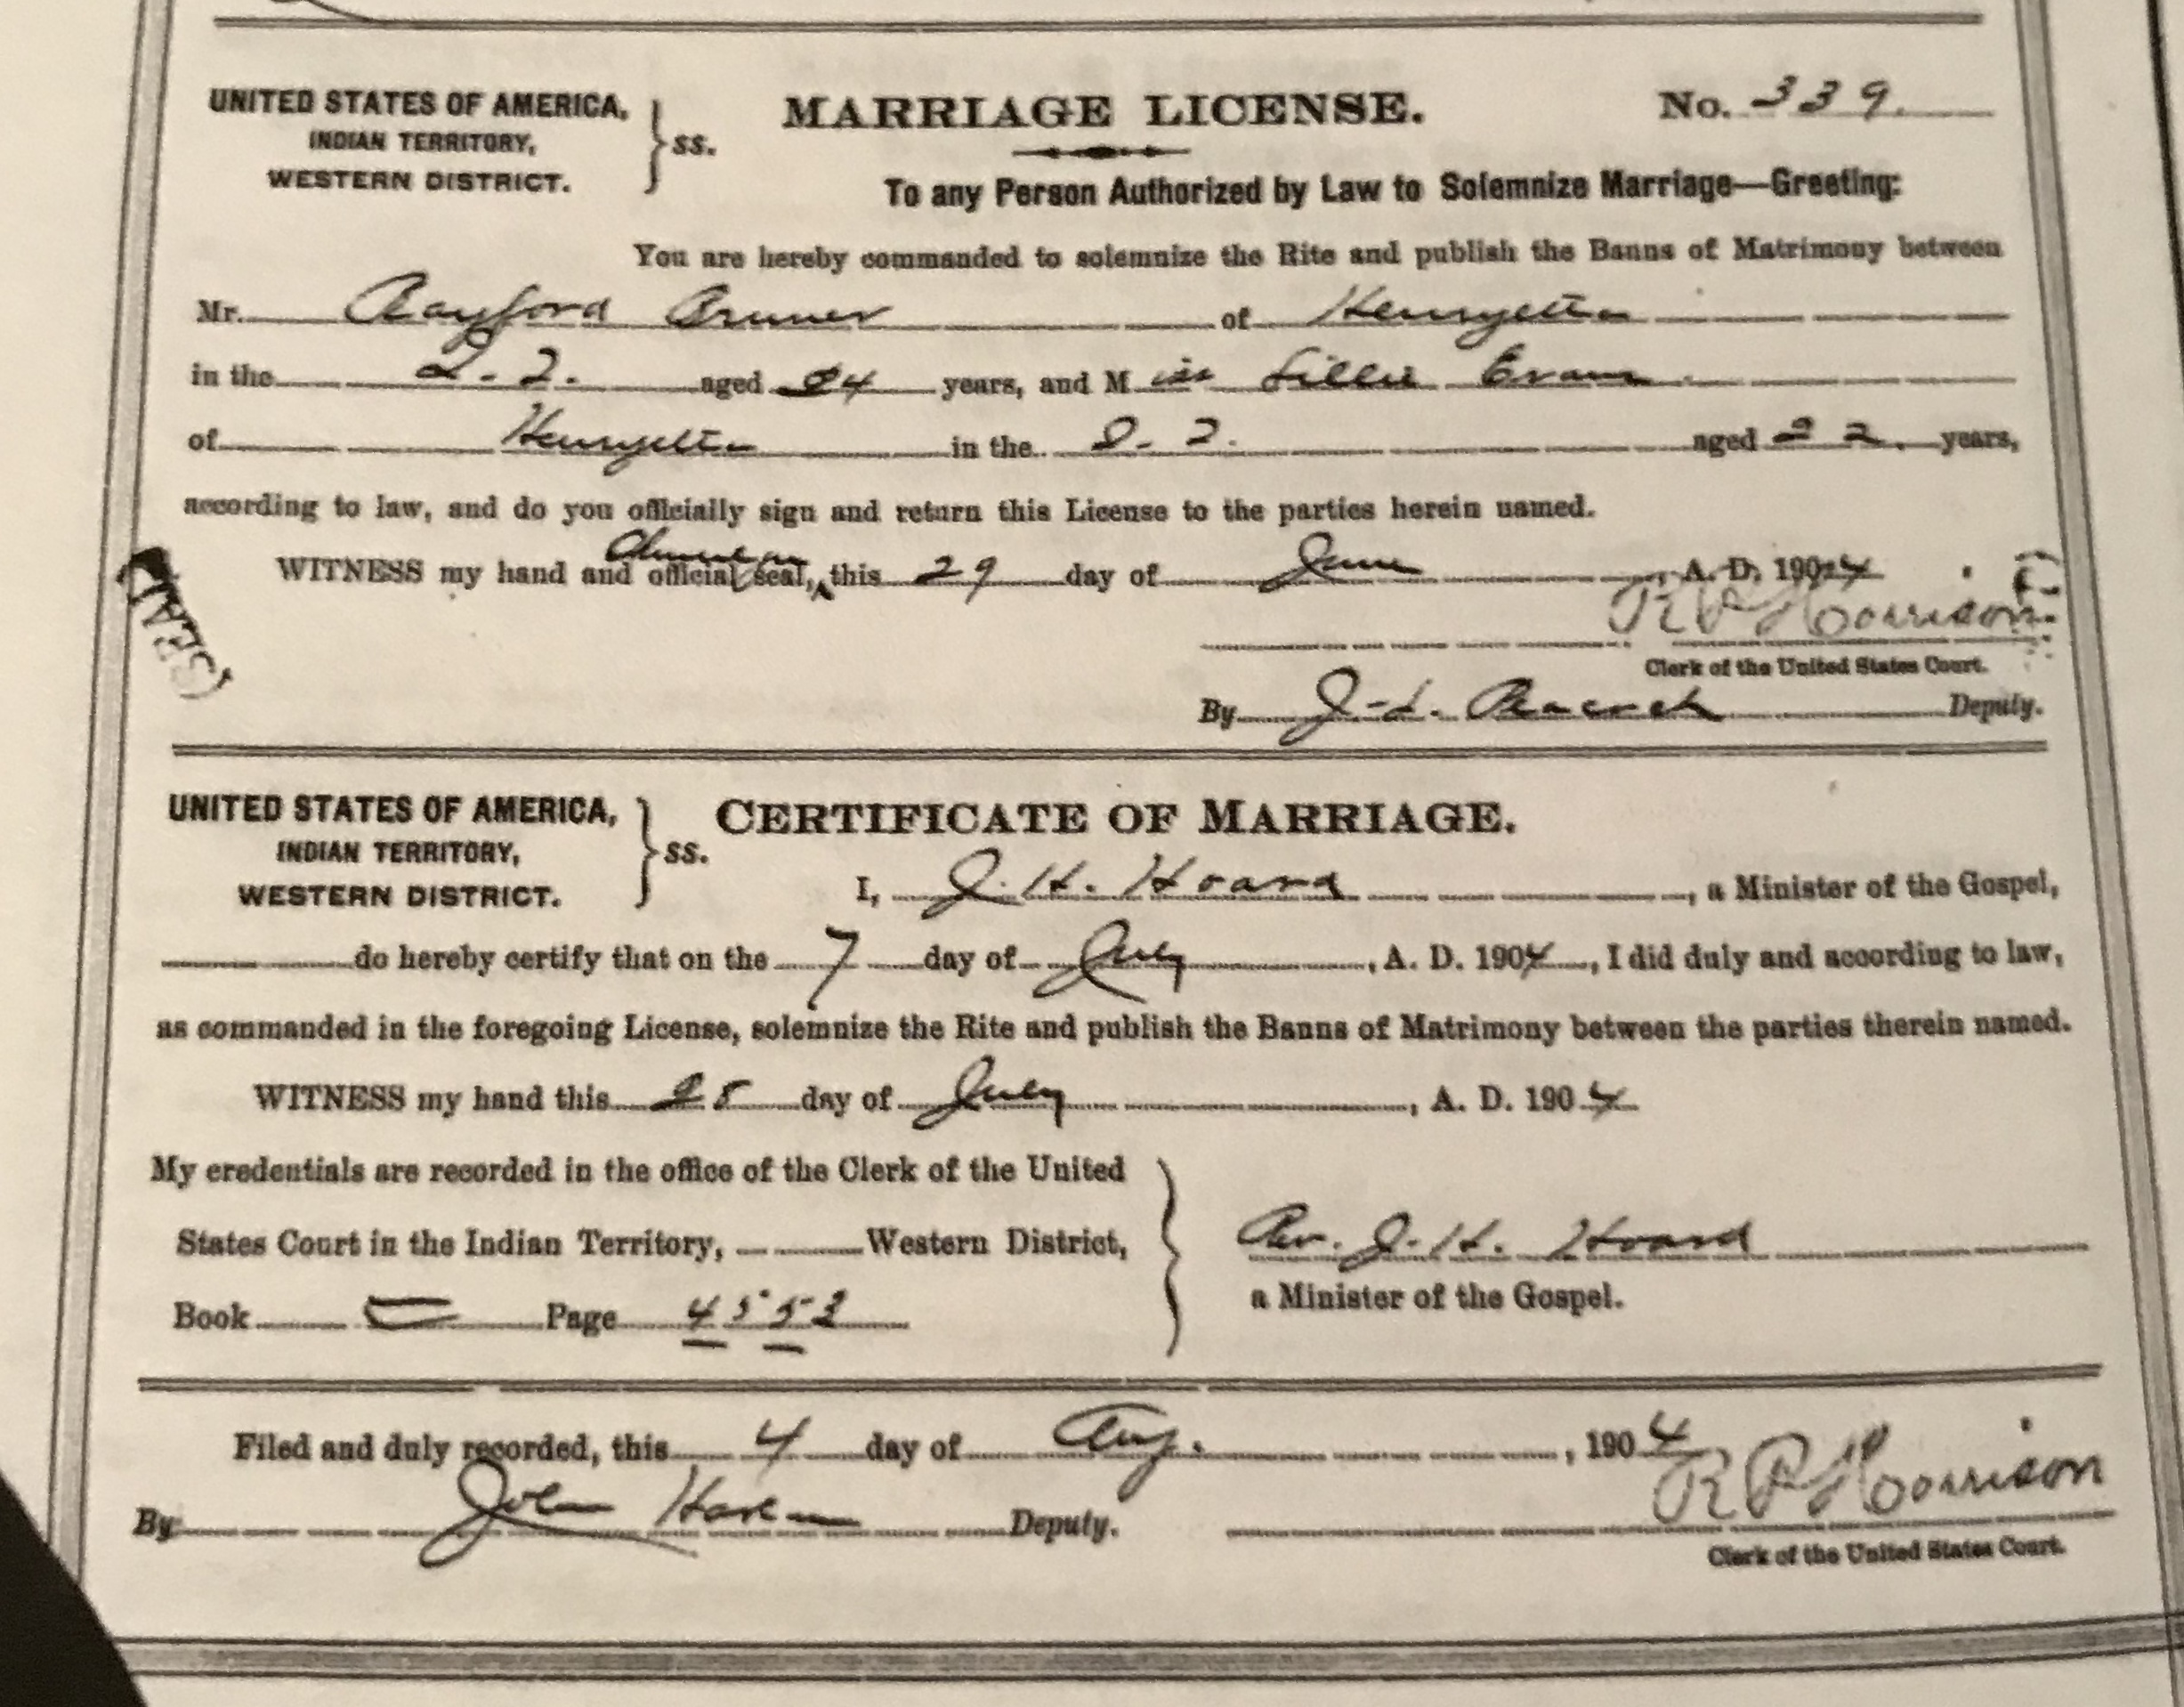 UNITED STATES OF AMERICA,
INDIAN TERRITORY,
WESTERN DISTRICT.
SS.
MARRIAGE LICENSE.
No. 339.
To any Person Authorized by Law to Solemnize Marriage—Greeting:
You are hereby commanded to solemnize the Rite and publish the Banns of Matrimony between
Mr. Rayford Bruner of Henryetta
in the I. T. aged 24 years, and Miss Lillie Evans
of Henryetta in the I. T. aged 22. years,
according to law, and do you officially sign and return this License to the parties herein named.
WITNESS my hand and official seal, this 29 day of June, A. D. 1904
(SEAL)
R P Harrison
Clerk of the United States Court.
By J. L. Peacock Deputy.
UNITED STATES OF AMERICA,
INDIAN TERRITORY,
WESTERN DISTRICT.
SS.
CERTIFICATE OF MARRIAGE.
I, J. H. Hoard, a Minister of the Gospel,
do hereby certify that on the 7 day of July, A. D. 1904, I did duly and according to law,
as commanded in the foregoing License, solemnize the Rite and publish the Banns of Matrimony between the parties therein named.
WITNESS my hand this day of July, A. D. 1904
My credentials are recorded in the office of the Clerk of the United
States Court in the Indian Territory, Western District,
Book Page
Rev. J. H. Hoard
a Minister of the Gospel.
Filed and duly recorded, this 4 day of Aug., 1904
By John Deputy.
R P Harrison
Clerk of the United States Court.